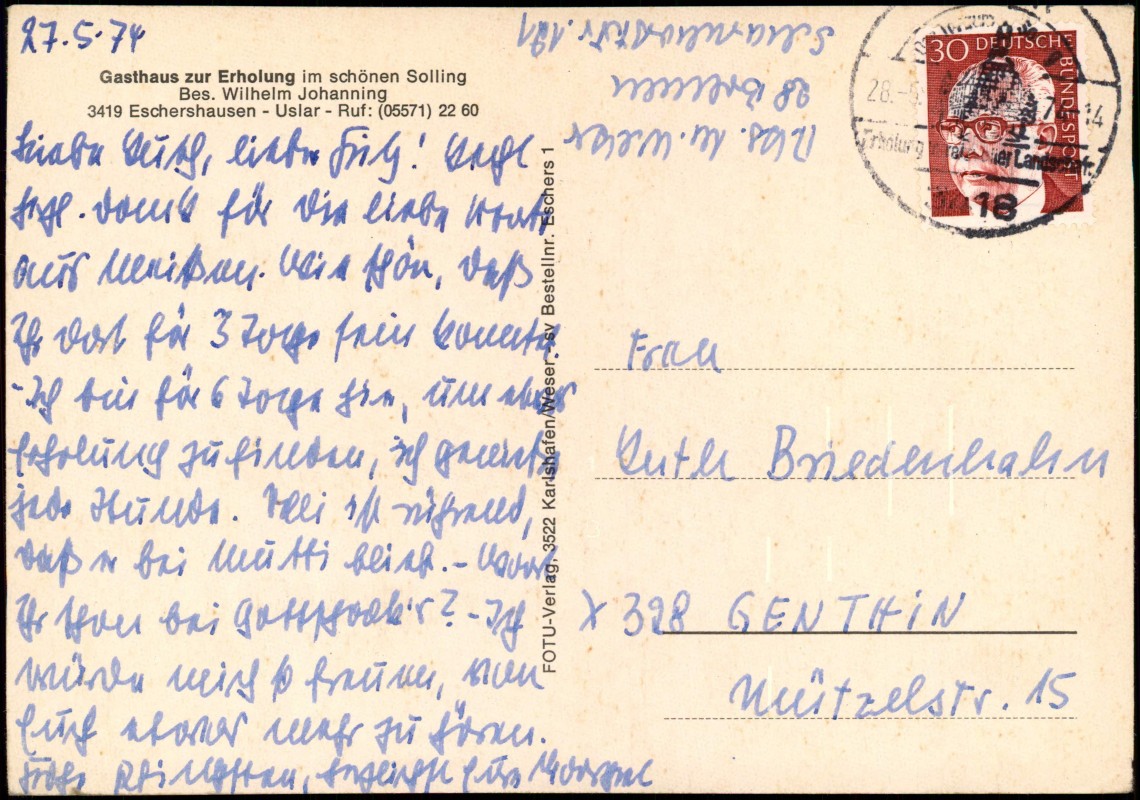 27.5.74
Gasthaus zur Erholung im schönen Solling
Bes. Wilhelm Johanning
3419 Eschershausen - Uslar - Ruf: (05571) 22 60
Liebe Ruth, lieber Fritz! Recht
herzl. Dank für die liebe Karte
aus Meißen. Wie schön, daß
Ihr dort für 3 Tage sein konntet.
- Ich bin für 6 Tage hier, um etwas
Erholung zu finden, ich genieße
jede Stunde. ist rührend,
daß er bei Mutti blieb. - Wart
Ihr schon bei Gottschalk's? - Ich
würde mich so freuen, von
Euch etwas mehr zu hören.
Frohe Pfingsten, herzlichst Eure
FOTU-Verlag, 3522 Karlshafen/Weser - sv Bestellnr. Eschers 1
28 Bremen
Scharnhorststr. 191
30 DEUTSCHE BUNDESPOST
28.-5. 74-14
Landschaft
18
Frau
Ruth Briedenhahn
X 328 GENTHIN
Mützelstr. 15